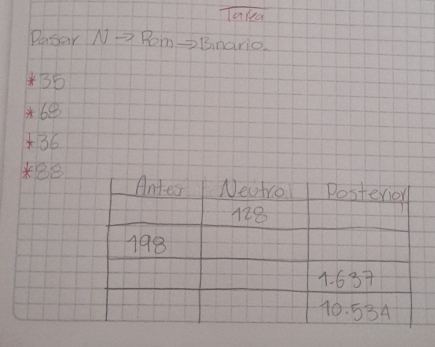 Tarea
Pasar N → Rom → Binario.
* 35
* 68
* 36
* 88
Antes Neutro Posterior
128
198
1.637
10.534